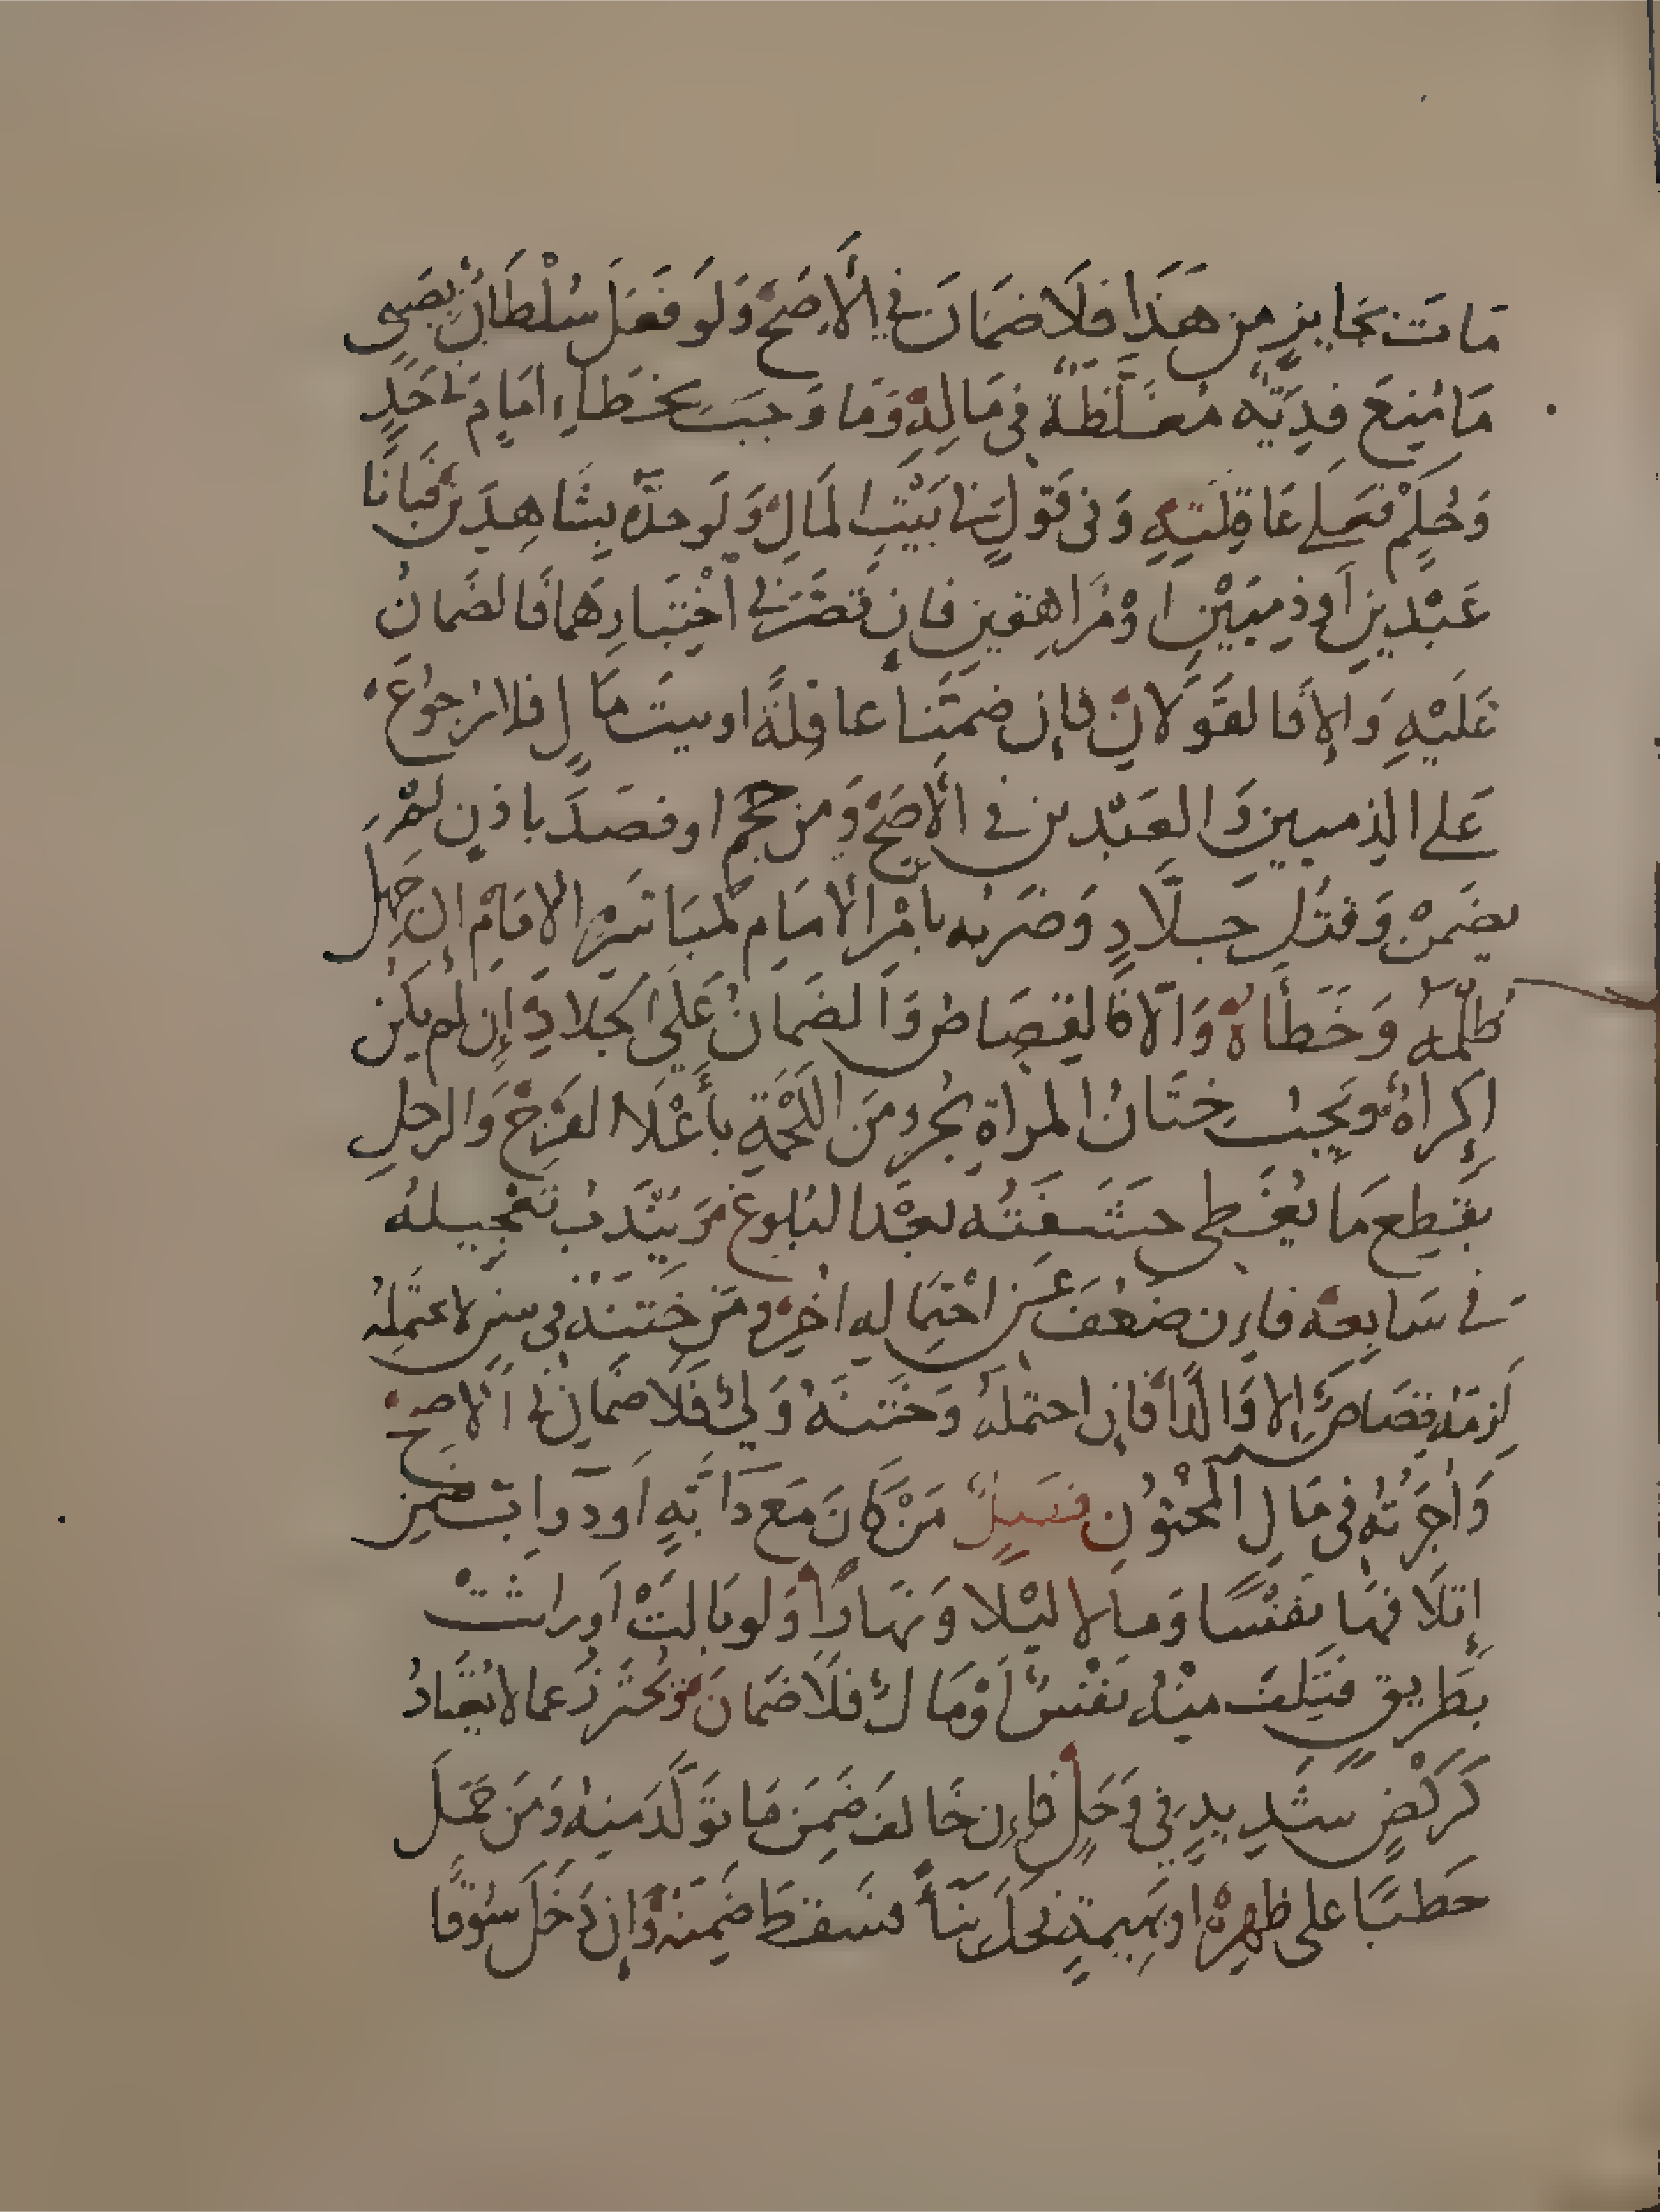 مَاتَ بجَايزٍ مِن هَذَا فَلَا ضَمَانَ فِي الْأَصَحّ وَلَو فَعَلَ سُلْطَانٌ بِصَبِي
مَا مُنِعَ فَدِيَتُه مُغَلَّظَةٌ فِي مَالِهِ وَمَا وَجَبَ بخَطَاءِ امَامٍ فِي حَدٍّ
وَحُكْمٍ فعَلى عَاقِلَتِهِ وَفي قَوْلٍ بَيْتِ المَالِ وَلَو حدَّهُ بِشَاهِدَيْنِ فَبَانَا
عَبْدَينِ أَو ذِمِيَّيْنِ اَوْ مُرَاهِقَينِ فان قصَّرَ فِي اخْتِبَارِهمَا فَالضَمانُ
عَلَيْهِ وَالاَّ فَالقَوْلانِ فَإِن ضمّنَا عاقِلَةً او بيتَ مَالٍ فلا رُجُوعَ
عَلى الذميين وَالعَبْدين في الأَصَحّ وَمَن حجَمَ او فصَدَ باذنٍ لَمْ
يضَمنْ وَقتْل جَلَّادٍ وَضَرْبُه بامْرِ الامَام كمبَاشرَةِ الامَامْ ان جهِلَ
ظلْمَهُ وَخَطَأَهُ وَالّا فَالقِصَاص وَالضَمَانُ عَلَى الجَلادِ إِن لم يكُن
إكرَاهٌ وَيَجِبُ خِتَانُ المراةِ بجُزءٍ مِنَ اللَّحْمَةِ بِأَعْلَا الفَرْجِ وَالرجلِ
بقَطعِ مَا يُغَطى حَشَفَتُه بعْدَ البُلوغ وَيُنْدَبُ تَعْجِيلهُ
في سَابِعه فَإن ضَعُفَ عَن احْتِمَالِهِ اُخِّرَ وَمَن خَتَنَهُ في سنٍ لا يحتمِلهُ
لَزِمَهُ قِصَاصٌ إِلا وَالدًا فَان احتملَهُ وَخَتنَهُ وَليٌ فَلَا ضمَانَ في الأَصحّ
وَأجرَتُه فِي مَالِ المَخْتُونِ فَصْلٌ مَنْ كَانَ مَعَ دَابَّةٍ اَو دَوابّ ضَمِن
إِتلَافهَا نفْسًا وَمالا ليْلا وَنَهارًا وَلو بَالَتْ اَو راثتْ
بطَرِيق فَتَلِفَ مِنْهُ نفْسٌ اَوْ مَالٌ فَلَا ضَمَانَ وَيُحْتَرَزُ عما لا يُعْتَادُ
كَرَكْضٍ شَدِيدٍ فِي وَحَلٍ فَإِن خَالفَ ضَمِنَ مَا تَوَلَّدَ مِنهُ وَمَن حَمَلَ
حَطَبًا على ظهرِهْ او بَهِيمةٍ فحَكَّ بنَاءً فسَقط ضَمِنَهُ وَإِن دَخَلَ سُوقًا